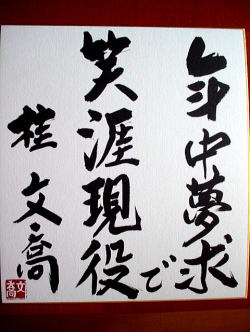 年中夢求で
笑涯現役
桂文喬
文喬